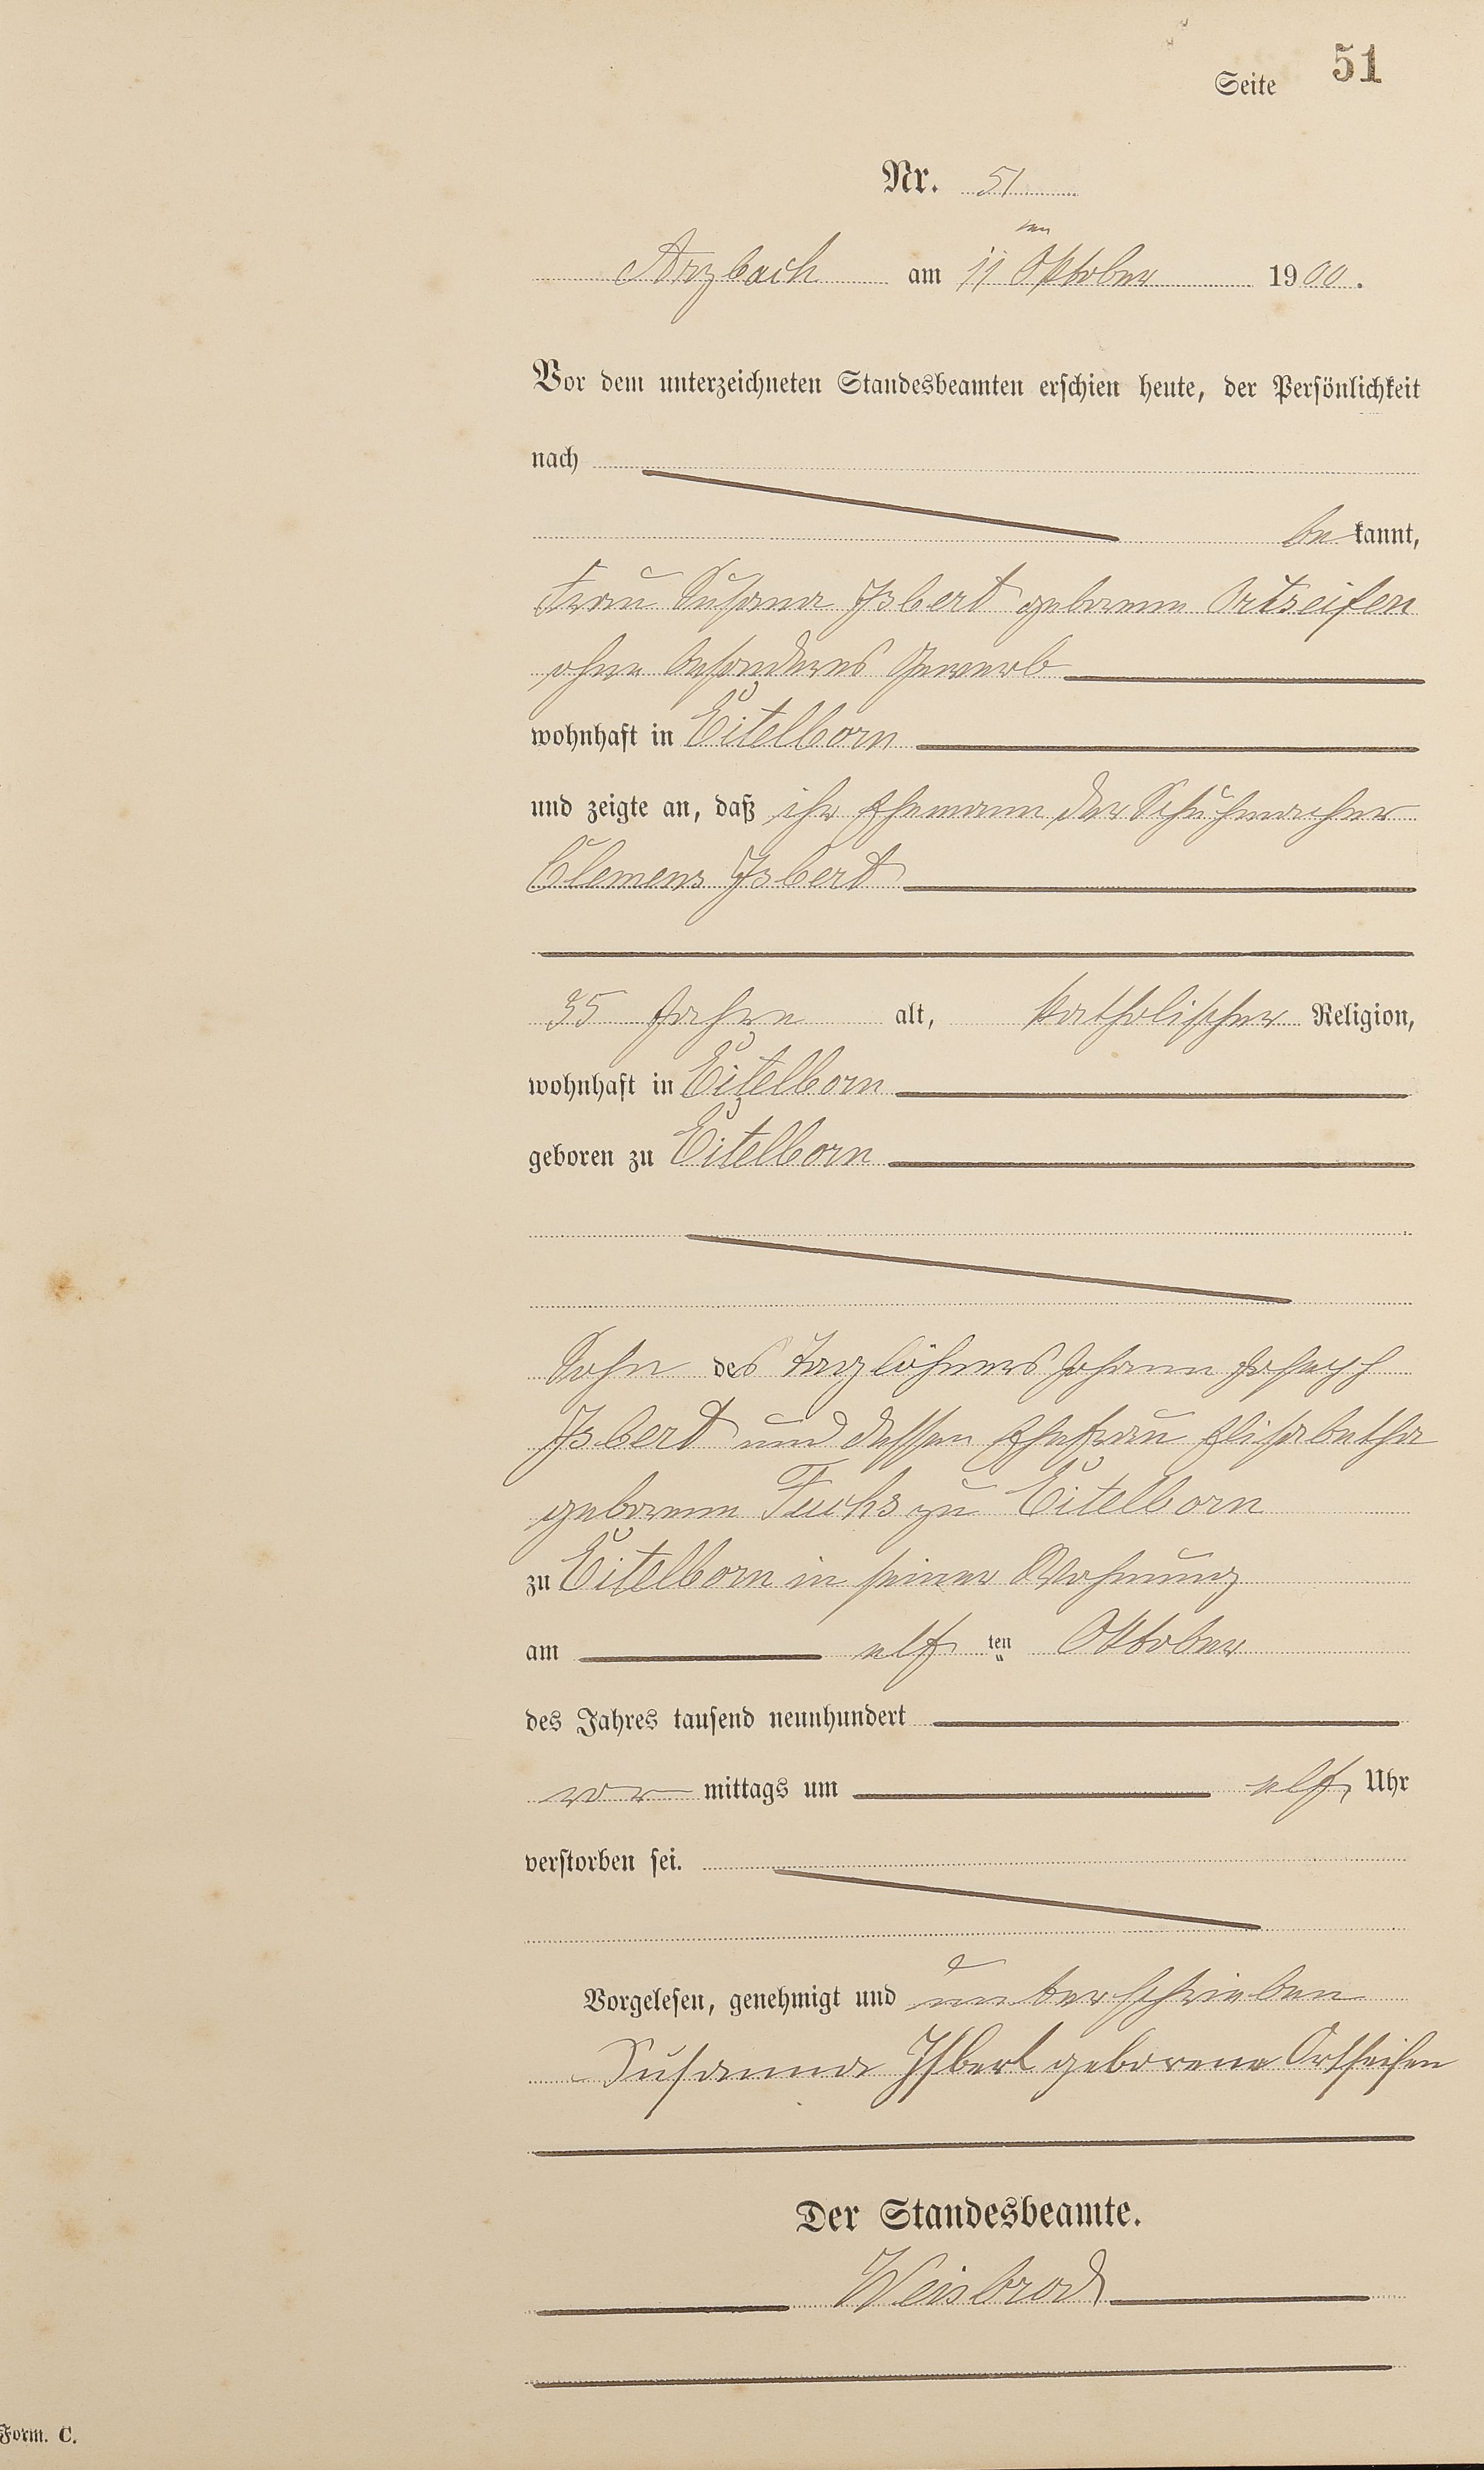 Seite 51
Nr. 51
Arzbach am 11ten Oktober 1900.
Vor dem unterzeichneten Standesbeamten erschien heute, der Persönlichkeit
nach
bekannt,
Frau Susana Isbert geborenen Ortseifen
ohne besonderes Gewerb
wohnhaft in Eitelborn
und zeigte an, daß ihr Ehemann der Schuhmacher
Clemens Isbert
35 Jahre alt, katholischer Religion,
wohnhaft in Eitelborn
geboren zu Eitelborn
Sohn des Taglöhners Johann Joseph
Isbert und dessen Ehefrau Elisabetha
geborenen Fuchs zu Eitelborn
zu Eitelborn in seiner Wohnung
am elf ten Oktober
des Jahres tausend neunhundert
vor mittags um elf Uhr
verstorben sei.
Vorgelesen, genehmigt und unterschrieben
Susanna Isbert geborene Ortseifen
Der Standesbeamte.
Weisbrod
Form. C.